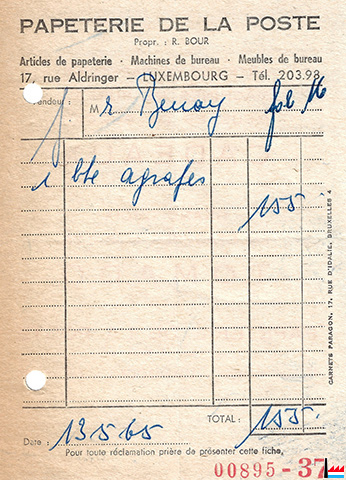 PAPETERIE DE LA POSTE
Propr. : R. BOUR
Articles de papeterie · Machines de bureau · Meubles de bureau
17, rue Aldringer — LUXEMBOURG — Tél. 203.98
Vendeur : M r
1 bte agrafes 155
TOTAL : 155.
Date : 13565
Pour toute réclamation prière de présenter cette fiche.
00895 - 37
CARNETS PARAGON, 17, RUE D'IDALIE, BRUXELLES 4